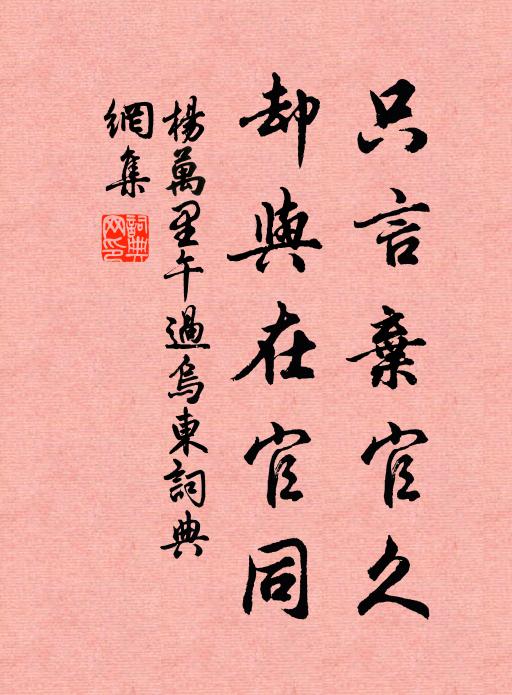 只言棄官久
却與在官同
楊萬里午過烏東詞典
網集
詞典
网印